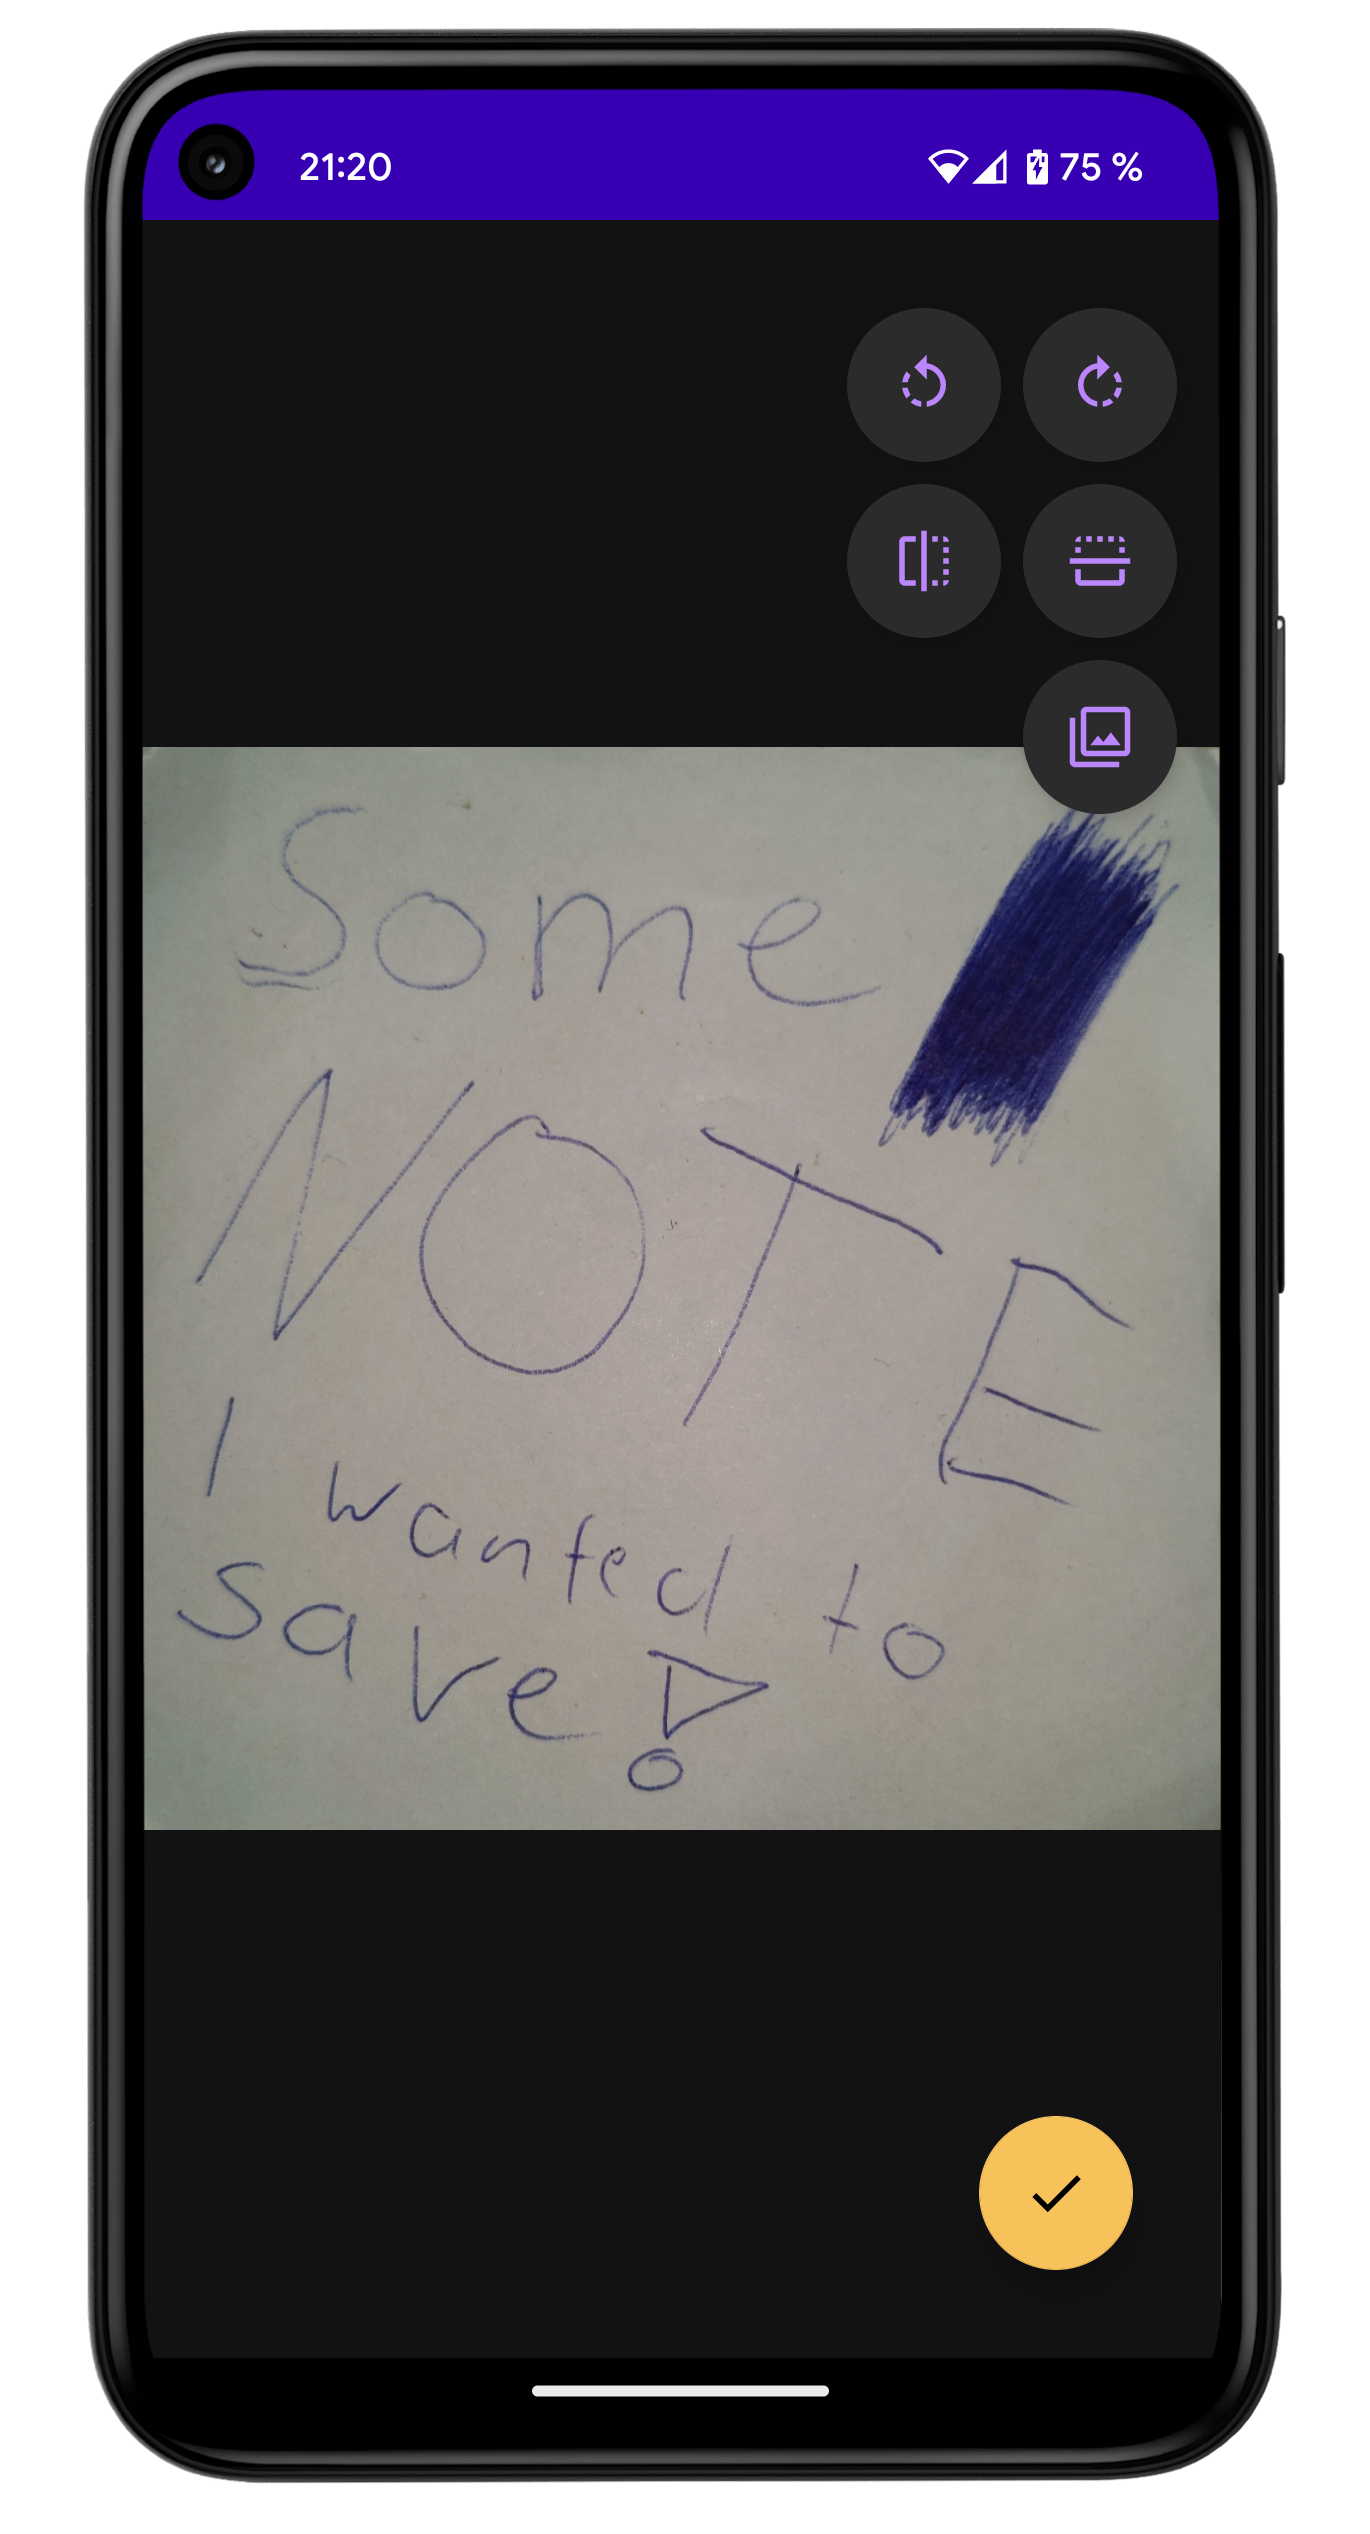 21:20 75 %
Some
NOTE
I wanted to
save!